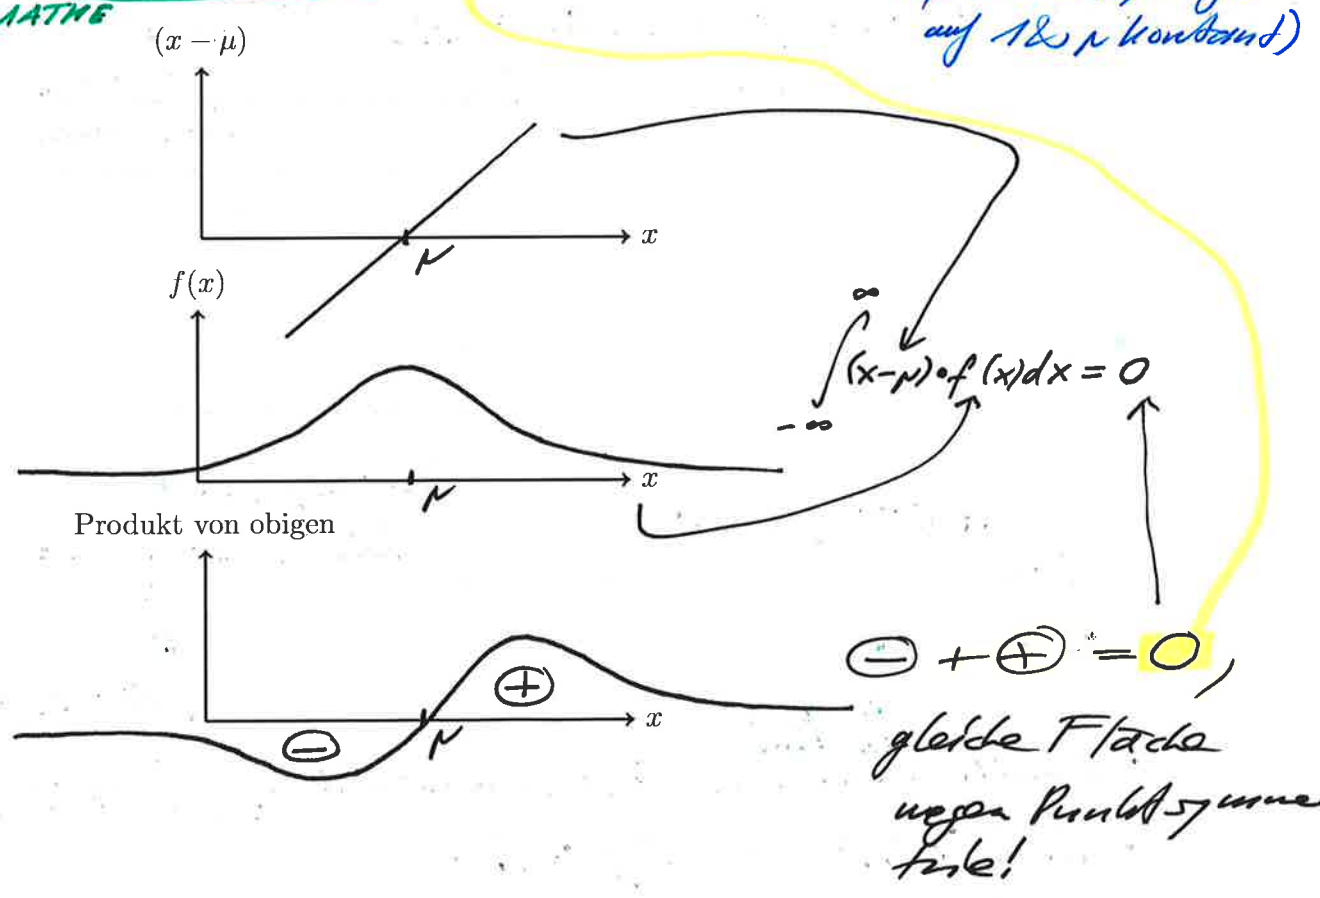 MATHE
auf 1 & μ konstant)
(x − μ)
x
μ
f(x)
∞
∫ (x-μ)•f(x)dx = 0
-∞
x
μ
Produkt von obigen
⊖ + ⊕ = 0,
⊕
x
μ
⊖
gleiche Fläche
wegen Punktsymme
trie!